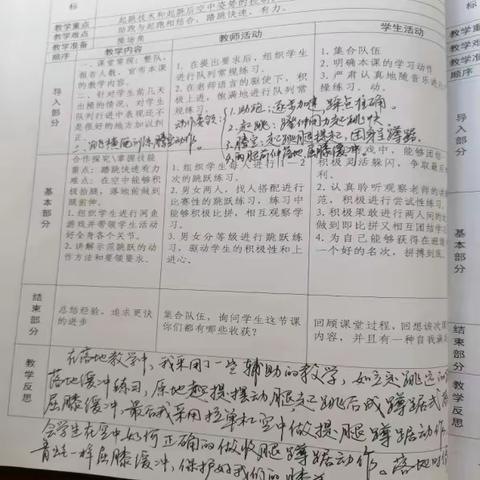 标
起跳技术和起跳后空中姿势的控制
教学重点
助跑与起跳相结合,踏跳快速、有力。
教学难点
教学准备
操场
顺序
教学内容
教师活动
学生活动
导入部分
一、课堂常规:整队、报告人数,宣布本课的教学内容。
二、针对学生前几天出操的情况,对学生队列行进中表现还不是很好的地方加以纠正。
1. 在提出要求后,组织学生进行队列常规练习。
2. 在老师语言的驱使下,积极上进,做满地进行队列常规练习。
1. 集合队伍
2. 明确本课的学习动作
3. 严肃认真地随音乐进行
操练习,动。
动作要领:
1. 助跑:逐步加速,踩点准确。
2. 起跳:蹬伸用力起跳快。
3. 腾空:起跳腿提起,团身呈蹲踞。
4. 两腿前伸落地屈膝缓冲
基本部分
合作探究、掌握技能
重点:踏跳快速有力
难点:在空中能够积极抬腿,落地前做到腿前伸。
1. 组织学生进行闯鱼游戏并带领学生活动好全身各个关节。
2. 讲解示范跳跃的动作方法和要领要求。
1. 组织学生每人进行1—2次的跳跃练习。
2. 男女两人,找人搭配进行比赛性的跳跃练习,练习中能够积极比拼,相互观察学习。
3. 男女分等级进行跳跃练习,驱动学生的积极性和上进心。
戏中,能够团
积极灵活躲闪,争取最后
利。
2. 认真聆听观察老师的讲
范,积极进行尝试性练习。
3. 积极果敢进行两人间的
做到即比拼又相互团结学习
4. 为自己能够获得在班级
一个好的名次,拼搏到底。
结束部分
总结经验,追求更快的进步
集合队伍,询问学生这节课你们都有哪些收获?
回顾课堂过程,回想该次课
内容,并且有一种自我满
教学反思
在落地教学中,我采用了一些辅助的教学,如立定跳远的
落地缓冲练习,原地起提摆动腿起跳后成蹲踞式落
屈膝缓冲,最后我采用拉单杠空中做提腿蹲踞动作
会学生在空中如何正确的做收腿蹲踞动作。落地时像
青蛙一样屈膝缓冲,保护好我们的膝
教学重点
教学难点
教学准备
顺序
导入部分
基本部分
结束部分
教学反思